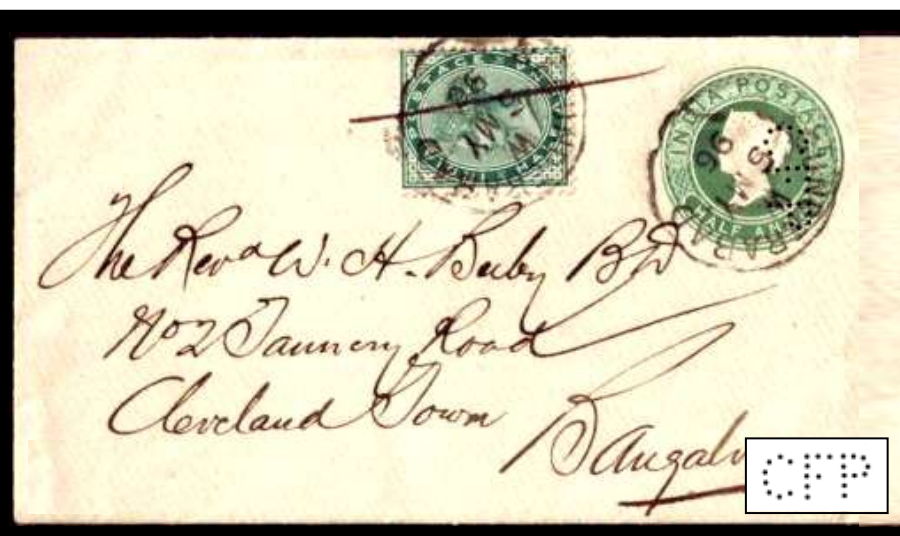 INDIA POSTAGE
HALF ANNA
96
5 MY
96
The Revd W. H. Buby BD
No 2 Tannery Road
Cleveland Town
Bangalo
CFP